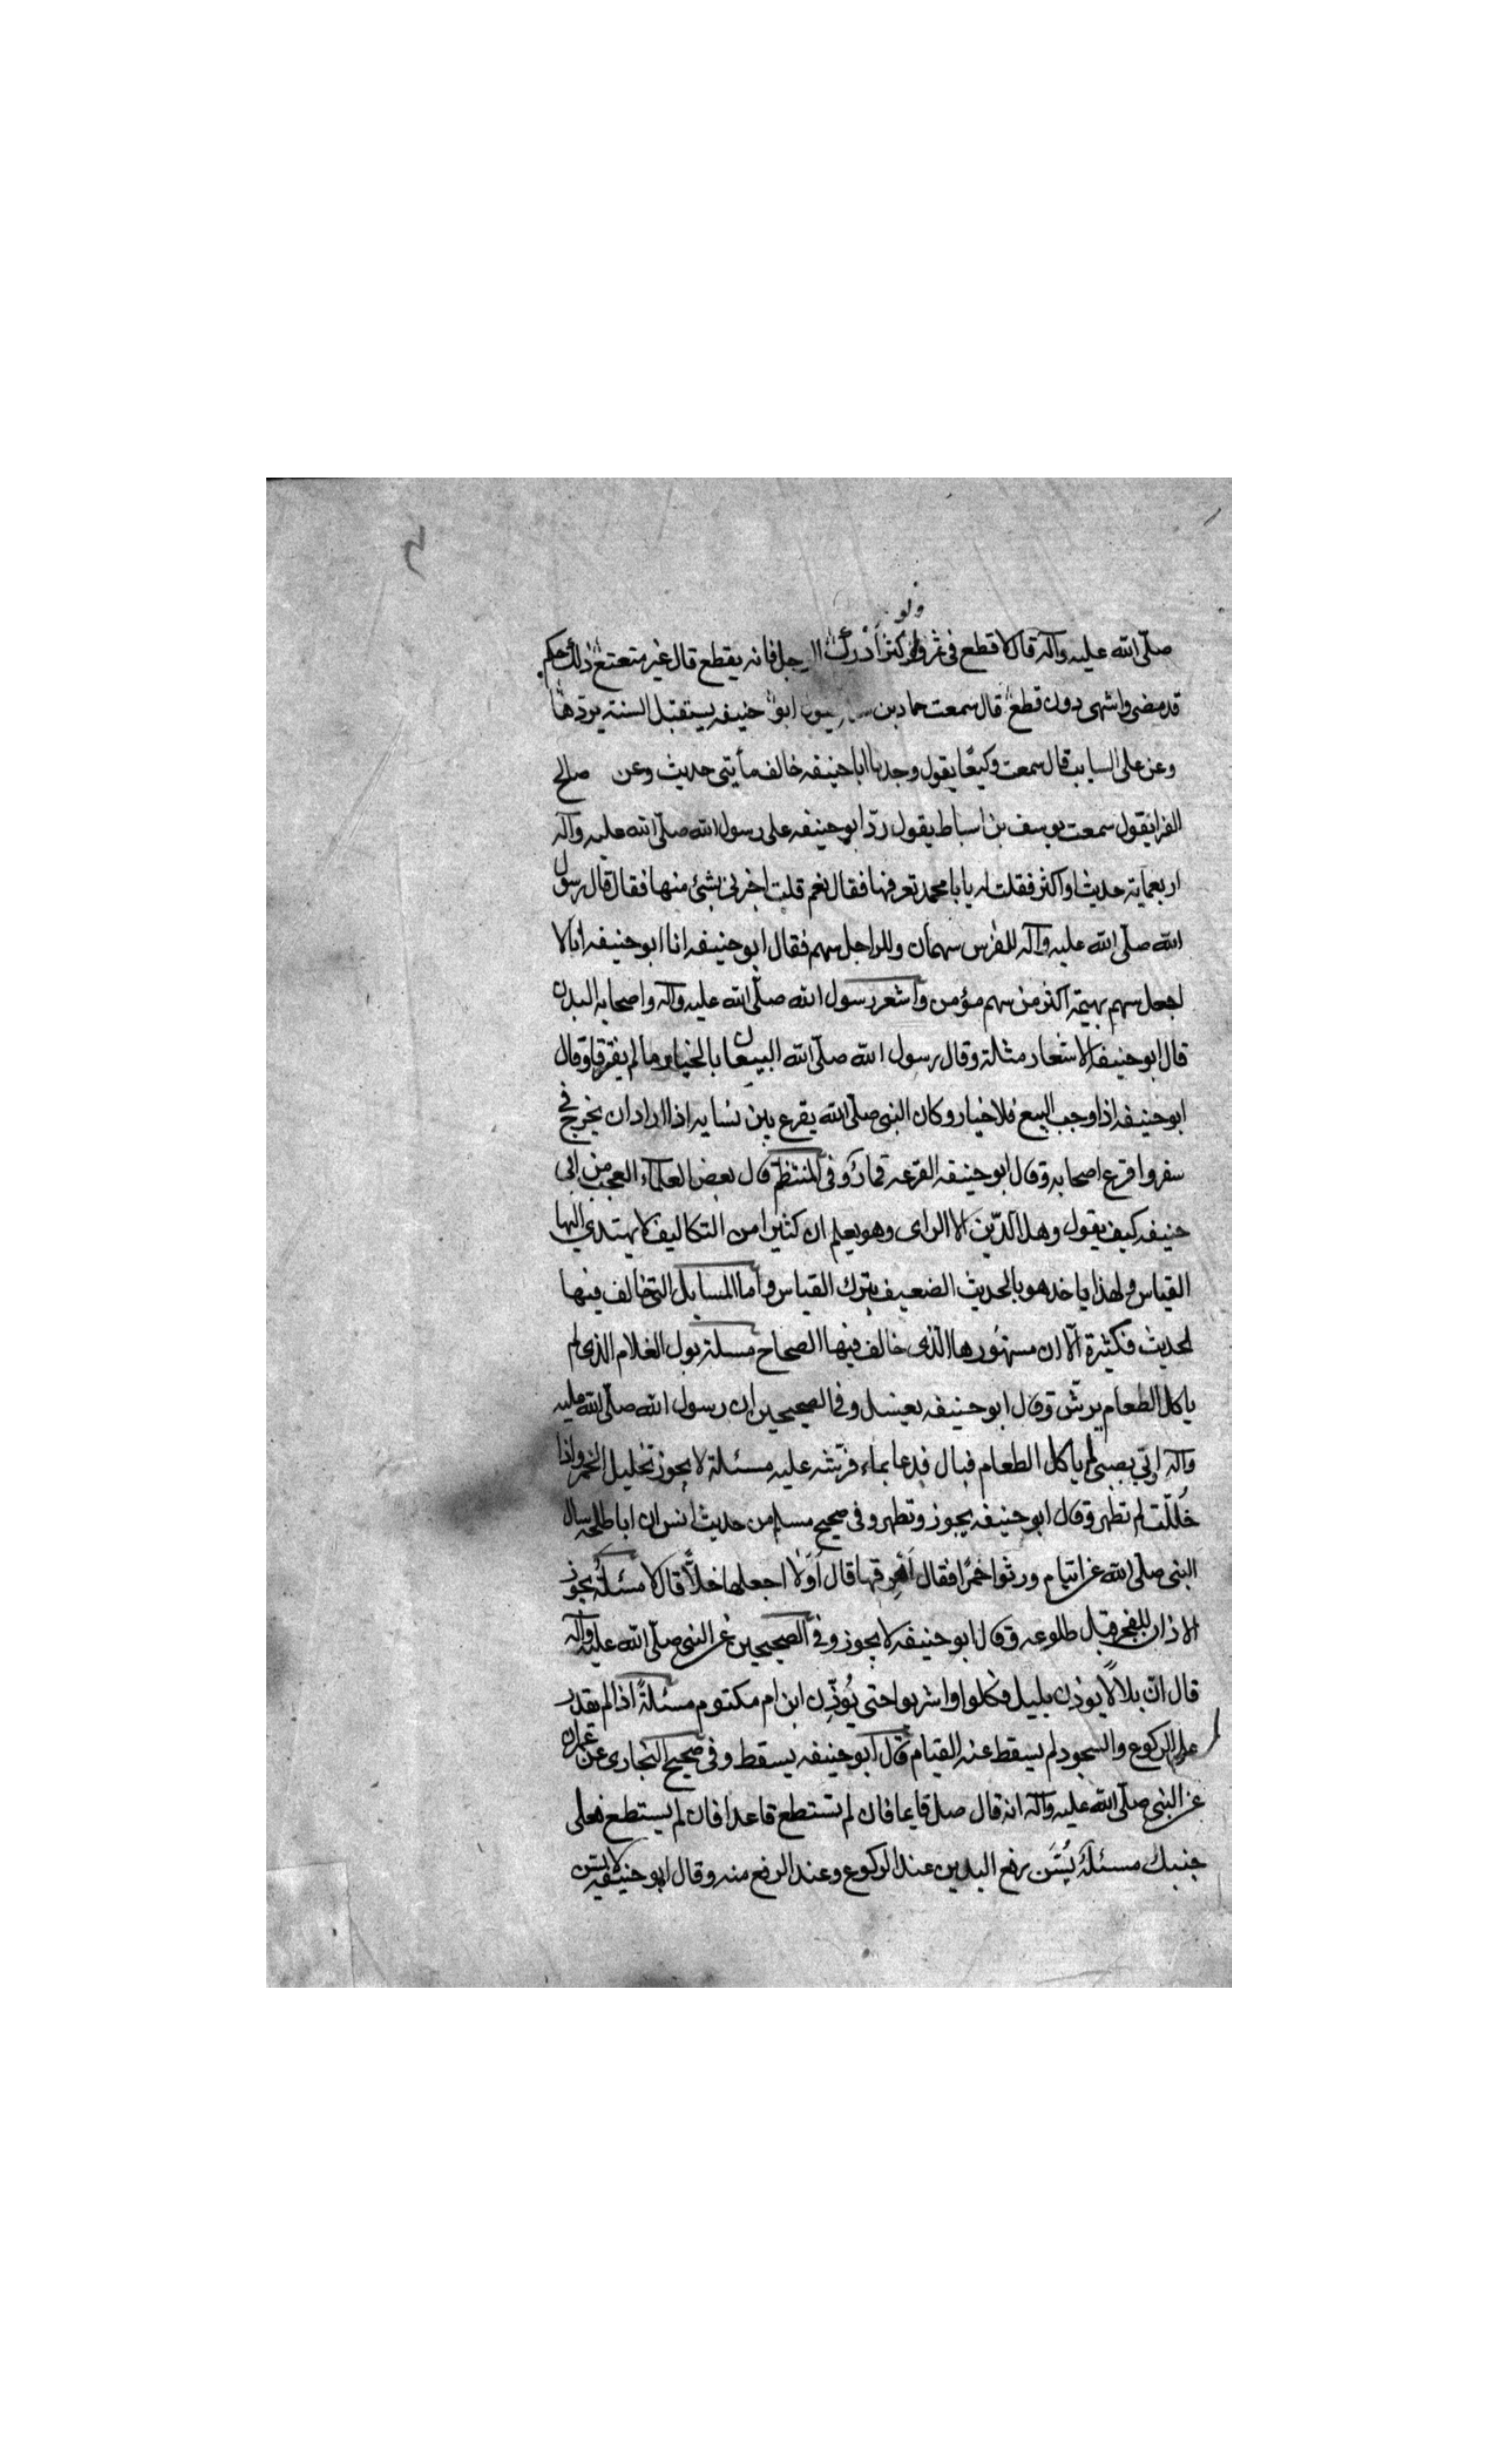 ولو
صلّى الله عليه وآله قال لا قطع فى ثمر ولا كثر أدرك الرجل فانه يقطع قال غير متعتع ذلك حكم
قد مضى وانتهى دون قطع قال سمعت حماد بن ابو حنيفه يستقبل السنة يردّها
وعن على السايب قال سمعت وكيعًا يقول وجدنا ابا حنيفه خالف مأيتى حديث وعن صالح
الفرا يقول سمعت يوسف بن اسباط يقول ردّ ابو حنيفه على رسول الله صلّى الله عليه وآله
اربعماية حديث او اكثر فقلت له يا با محمد تعرفها فقال نعم قلت اخبرنى بشئ منها فقال قال رسول
الله صلّى الله عليه وآله للفرس سهمان وللراجل سهم فقال ابو حنيفه انا ابو حنيفه انا لا
اجعل سهم بهيمة اكثر من سهم مؤمن وأشعر رسول الله صلّى الله عليه وآله واصحابه البدن
قال ابو حنيفه الاشعار مثلة وقال رسول الله صلّى الله البيعان بالخيار ما لم يفترقا وقال
ابو حنيفه اذا وجب البيع فلا خيار وكان النبى صلّى الله يقرع بين نسايه اذا اراد ان يخرج فى
سفر واقرع اصحابه وقال ابو حنيفه القرعه قمار وفى المنتظم قال بعض العلماء العجب من ابى
حنيفه كيف يقول وهل الدّين الا الراى وهو يعلم ان كثيرا من التكاليف لا يهتدي اليها
القياس ولهذا ياخذ هو بالحديث الضعيف بترك القياس وأما المسايل التى خالف فيها
لحديث فكثيرة الّا ان مشهورها الذى خالف فيها الصحاح مسلة بول الغلام الذى لم
ياكل الطعام يرشّ وقال ابو حنيفه يغسل وفى الصحيحين ان رسول الله صلّى الله عليه
وآله اوتي بصبى لم ياكل الطعام فبال فدعا بماء فرشه عليه مسئلة لا يجوز تخليل الخمر واذا
خُلّلت لم تطهر وقال ابو حنيفه يجوز وتطهر وفى صحيح مسلم من حديث انس ان ابا طلحه سال
النبى صلّى الله عن ايتام ورثوا خمرًا فقال أهرقها قال أولا اجعلها خلًّا قال لا مسئلة يجوز
الاذان للفجر قبل طلوعه وقال ابو حنيفه لا يجوز وفى الصحيحين عن النبى صلّى الله عليه وآله
قال انّ بلالًا يوذن بليل فكلوا واشربوا حتى يُوذّن ابن ام مكتوم مسئلةً اذا لم يقدر
على الركوع والسجود لم يسقط عنه القيام قال ابو حنيفه يسقط وفى صحيح البخارى عن عمران
عن النبى صلّى الله عليه وآله انه قال صل قايما فان لم تستطع قاعدا فان لم يستطع فعلى
جنبك مسئلة يُسَن رفع اليدين عند الركوع وعند الرفع منه وقال ابو حنيفه لا يسن